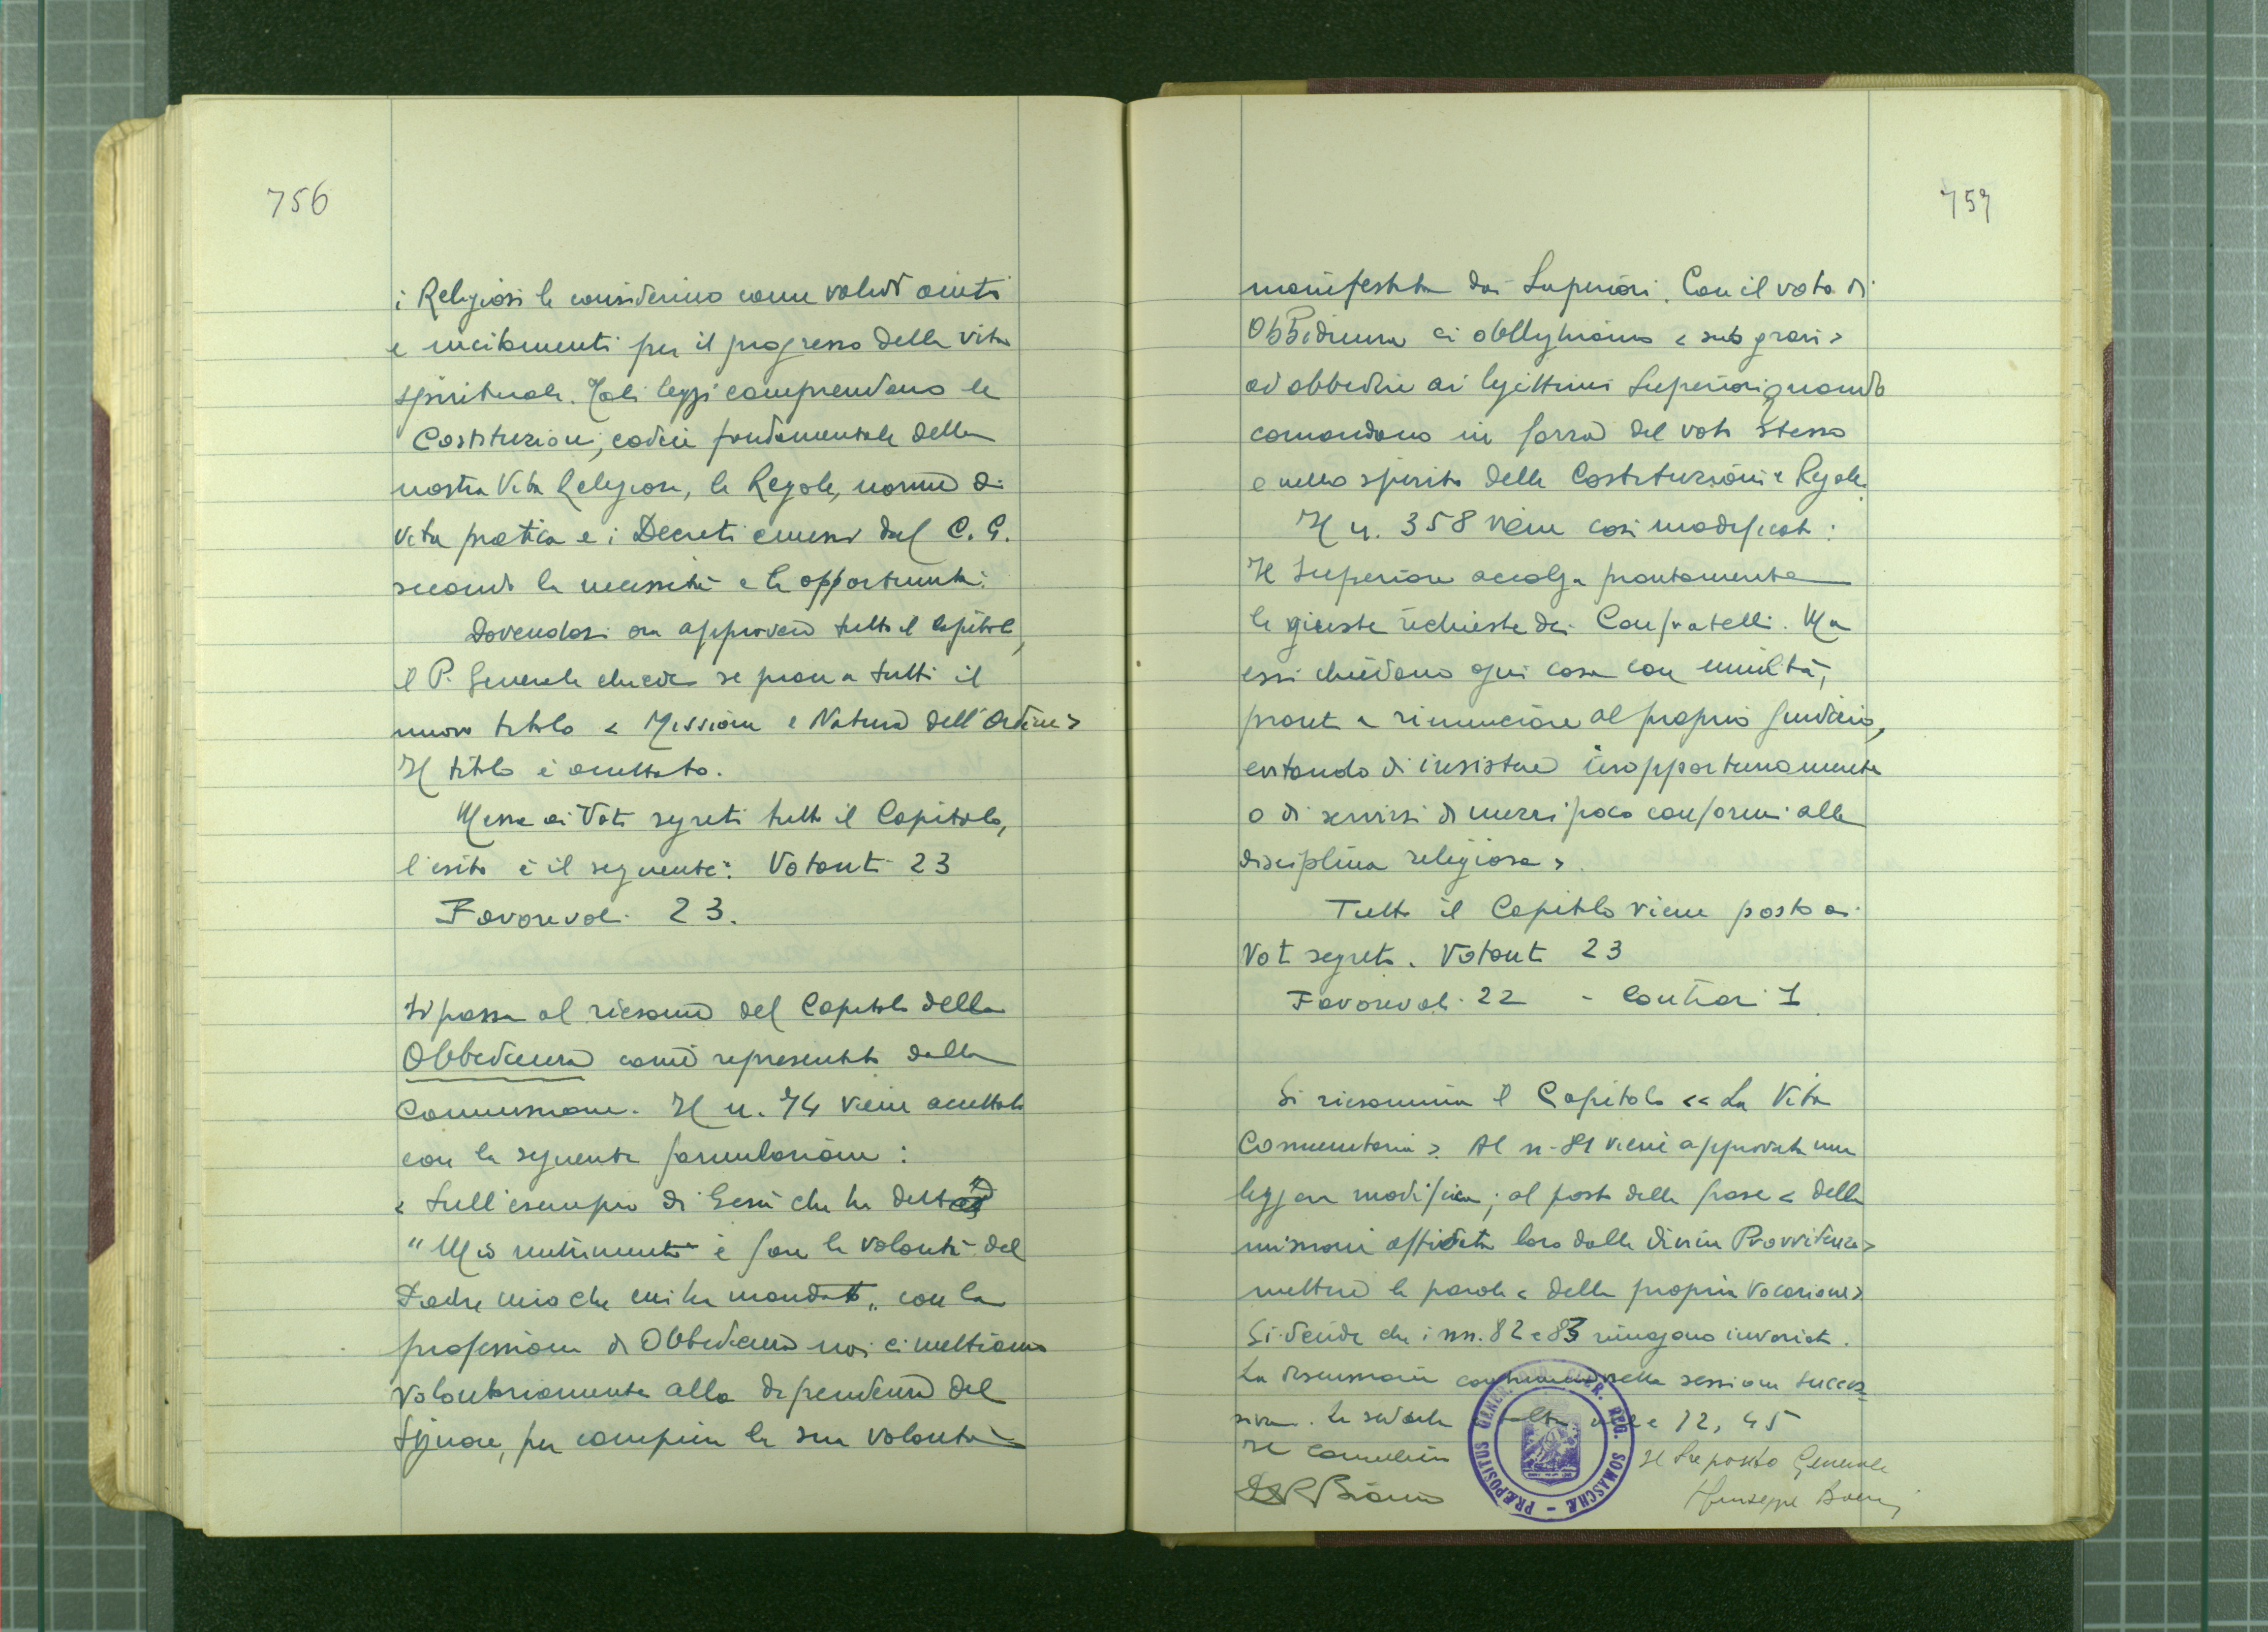 756
i Religiosi le considerino come validi aiuti
e incitamenti per il progresso della vita
spirituale. Tali leggi comprendono le
Costituzioni, codice fondamentale della
nostra Vita Religiosa, le Regole, norme di
vita pratica e i Decreti emessi dal C. G.
secondo le necessità e le opportunità.
Dovendosi ora approvare tutto il Capitolo,
il P. Generale chiede se piace a tutti il
nuovo titolo < Missione e Natura dell'Ordine>
Il titolo è accettato.
Messo ai Voti segreti tutto il Capitolo,
l'esito è il seguente: Votanti 23
Favorevoli 23.
Si passa al riesame del Capitolo della
Obbedienza come ripresentato dalla
Commissione. Il n. 74 viene accettato
con la seguente formulazione :
< Sull'esempio di Gesù che ha detto
"Mio nutrimento è fare la volontà del
Padre mio che mi ha mandato„ con la
professione di Obbedienza noi ci mettiamo
volontariamente alla dipendenza del
Signore, per compiere la sua volontà
757
manifestata dai Superiori. Con il voto di
Obbedienza ci obblighiamo < sub gravi >
ad obbedire ai legittimi Superiori quando
comandano in forza del voto stesso
e nello spirito delle Costituzioni e Regole.
Il n. 358 viene così modificato :
Il Superiore accolga prontamente
le giuste richieste dei Confratelli. Ma
essi chiedano ogni cosa con umiltà,
pronti a rinunciare al proprio giudizio,
evitando di insistere inopportunamente
o di servirsi di mezzi poco conformi alla
disciplina religiosa >.
Tutto il Capitolo viene posto ai
Voti segreti. Votanti 23
Favorevoli 22 - Contrari 1
Si riesamina il Capitolo << La Vita
Comunitaria >. Al n. 81 viene approvata una
leggera modifica ; al posto della frase < della
missione affidata loro dalla divina Provvidenza>
mettere le parole < della propria Vocazione>
Si decide che i nn. 82 e 83 rimangano invariati.
La discussione continuerà nella sessione succes-
siva. La seduta è tolta alle 12,45
Il Cancelliere
Il Preposito Generale
P. Bianco
Giuseppe Boeris
PRÆPOSITUS GENER. ORD. CLER. REG. SOMASCHÆ